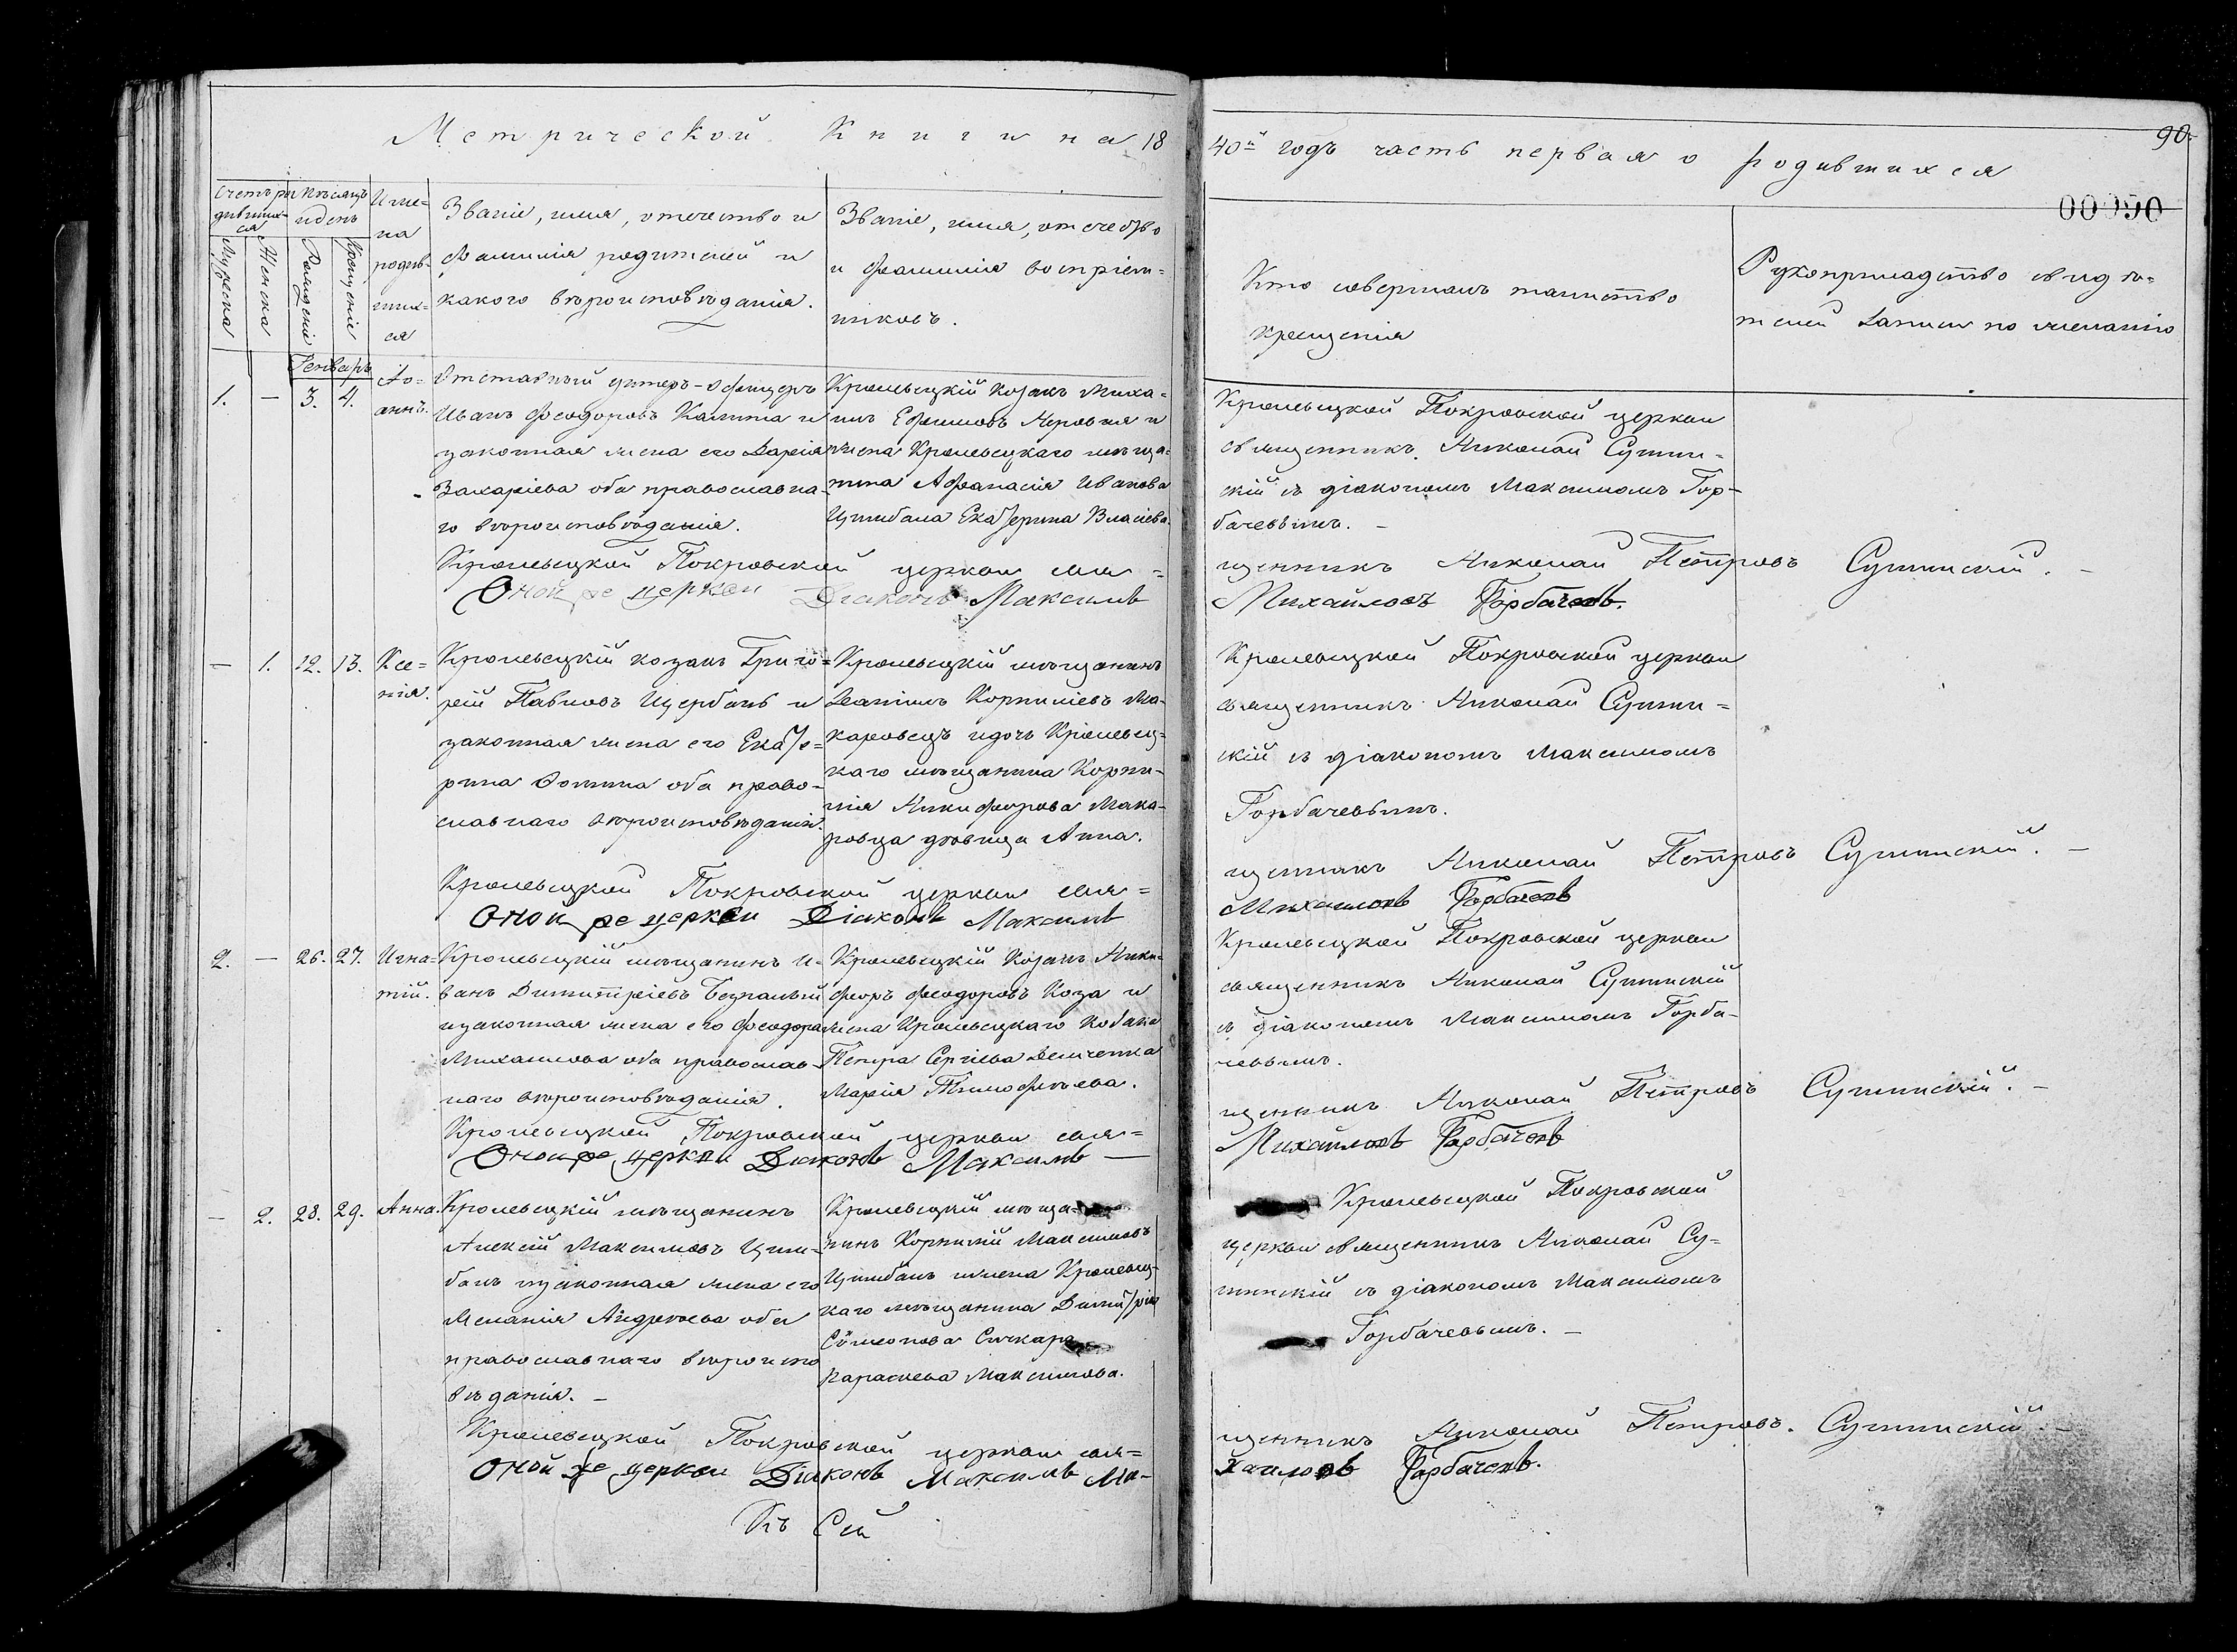 Метрической Книги на 18
40й годъ часть первая о родившихся
90.
00090
Счетъ ро
дивших
ся
Мужеска
Женска
Мѣсяцъ
и день
Рожденіе
Крещеніе
Име-
на
родив-
ших-
ся
Званіе, имя, отечество и
фамилія родителей и
какого вѣроисповѣданія.
Званіе, имя, отечество
и фамилія воспріем-
никовъ.
Кто совершалъ таинство
крещенія
Рукоприкладство свидѣ-
телей записи по желанію
Генварь
1. — 3. 4.
Іо-
аннъ.
Отставный унтеръ-офицеръ
Иванъ Феодоровъ Калина и
законная жена его Дарія
Захаріева оба православна-
го вѣроисповѣданія.
Кролевецкій козакъ Миха-
илъ Ефимовъ и
жена Кролевецкаго мѣща-
нина Афанасія Иванова
Цимбала Екатерина Власіева.
Кролевецкой Покровской церкви
священникъ Николай Сушин-
скій съ діакономъ Максимомъ Гор-
бачевымъ. —
Кролевецкой Покровской церкви свя=
щенникъ Николай Петровъ Сушинскій. —
Оной же церкви Діаконъ Максимъ
Михайловъ Горбачевъ.
— 1. 12. 13.
Ксе=
нія.
Кролевецкій козакъ Григо=
рій Павловъ Щербакъ и
законная жена его Екате=
рина Фомина оба право-
славнаго вѣроисповѣданія.
Кролевецкій мѣщанинъ
Даніилъ Корниліевъ Ма-
каровецъ и дочь Кролевец-
каго мѣщанина Корни-
лія Никифорова Мака-
ровца дѣвица Анна.
Кролевецкой Покровской церкви
священникъ Николай Сушин=
скій съ діакономъ Максимомъ
Горбачевымъ.
Кролевецкой Покровской церкви свя=
щенникъ Николай Петровъ Сушинскій. —
Оной же церкви Діаконъ Максимъ
Михайловъ Горбачевъ
2. — 26. 27.
Игна=
тій.
Кролевецкій мѣщанинъ И-
ванъ Димитріевъ Безпалый
и законная жена его Феодора
Михайлова оба православ-
наго вѣроисповѣданія.
Кролевецкій Козакъ Ники-
форъ Феодоровъ Коза и
жена Кролевецкаго Козака
Петра Сергіева Демченка
Марія Тимофѣева.
Кролевецкой Покровской церкви
священникъ Николай Сушинскій
съ діакономъ Максимомъ Горба-
чевымъ.
Кролевецкой Покровской церкви свя=
щенникъ Николай Петровъ Сушинскій. —
Оной же церкви Діаконъ Максимъ —
Михайловъ Горбачевъ
— 2. 28. 29.
Анна.
Кролевецкій мѣщанинъ
Алексій Максимовъ Цим-
балъ и законная жена его
Меланія Андреева оба
православнаго вѣроиспо
вѣданія. —
Кролевецкій мѣща-
нинъ Корнилій Максимовъ
Цимбалъ и жена Кролевец-
каго мѣщанина Димитрія
Сѵмеонова Сичкаря
Параскева Максимова.
Кролевецкой Покровской
церкви священникъ Николай Су-
шинскій съ діакономъ Максимомъ
Горбачевымъ. —
Кролевецкой Покровской церкви свя=
щенникъ Николай Петровъ. Сушинскій. —
Оной же церкви Діаконъ Максимъ Ми-
хайловъ Горбачевъ.
Къ Сей